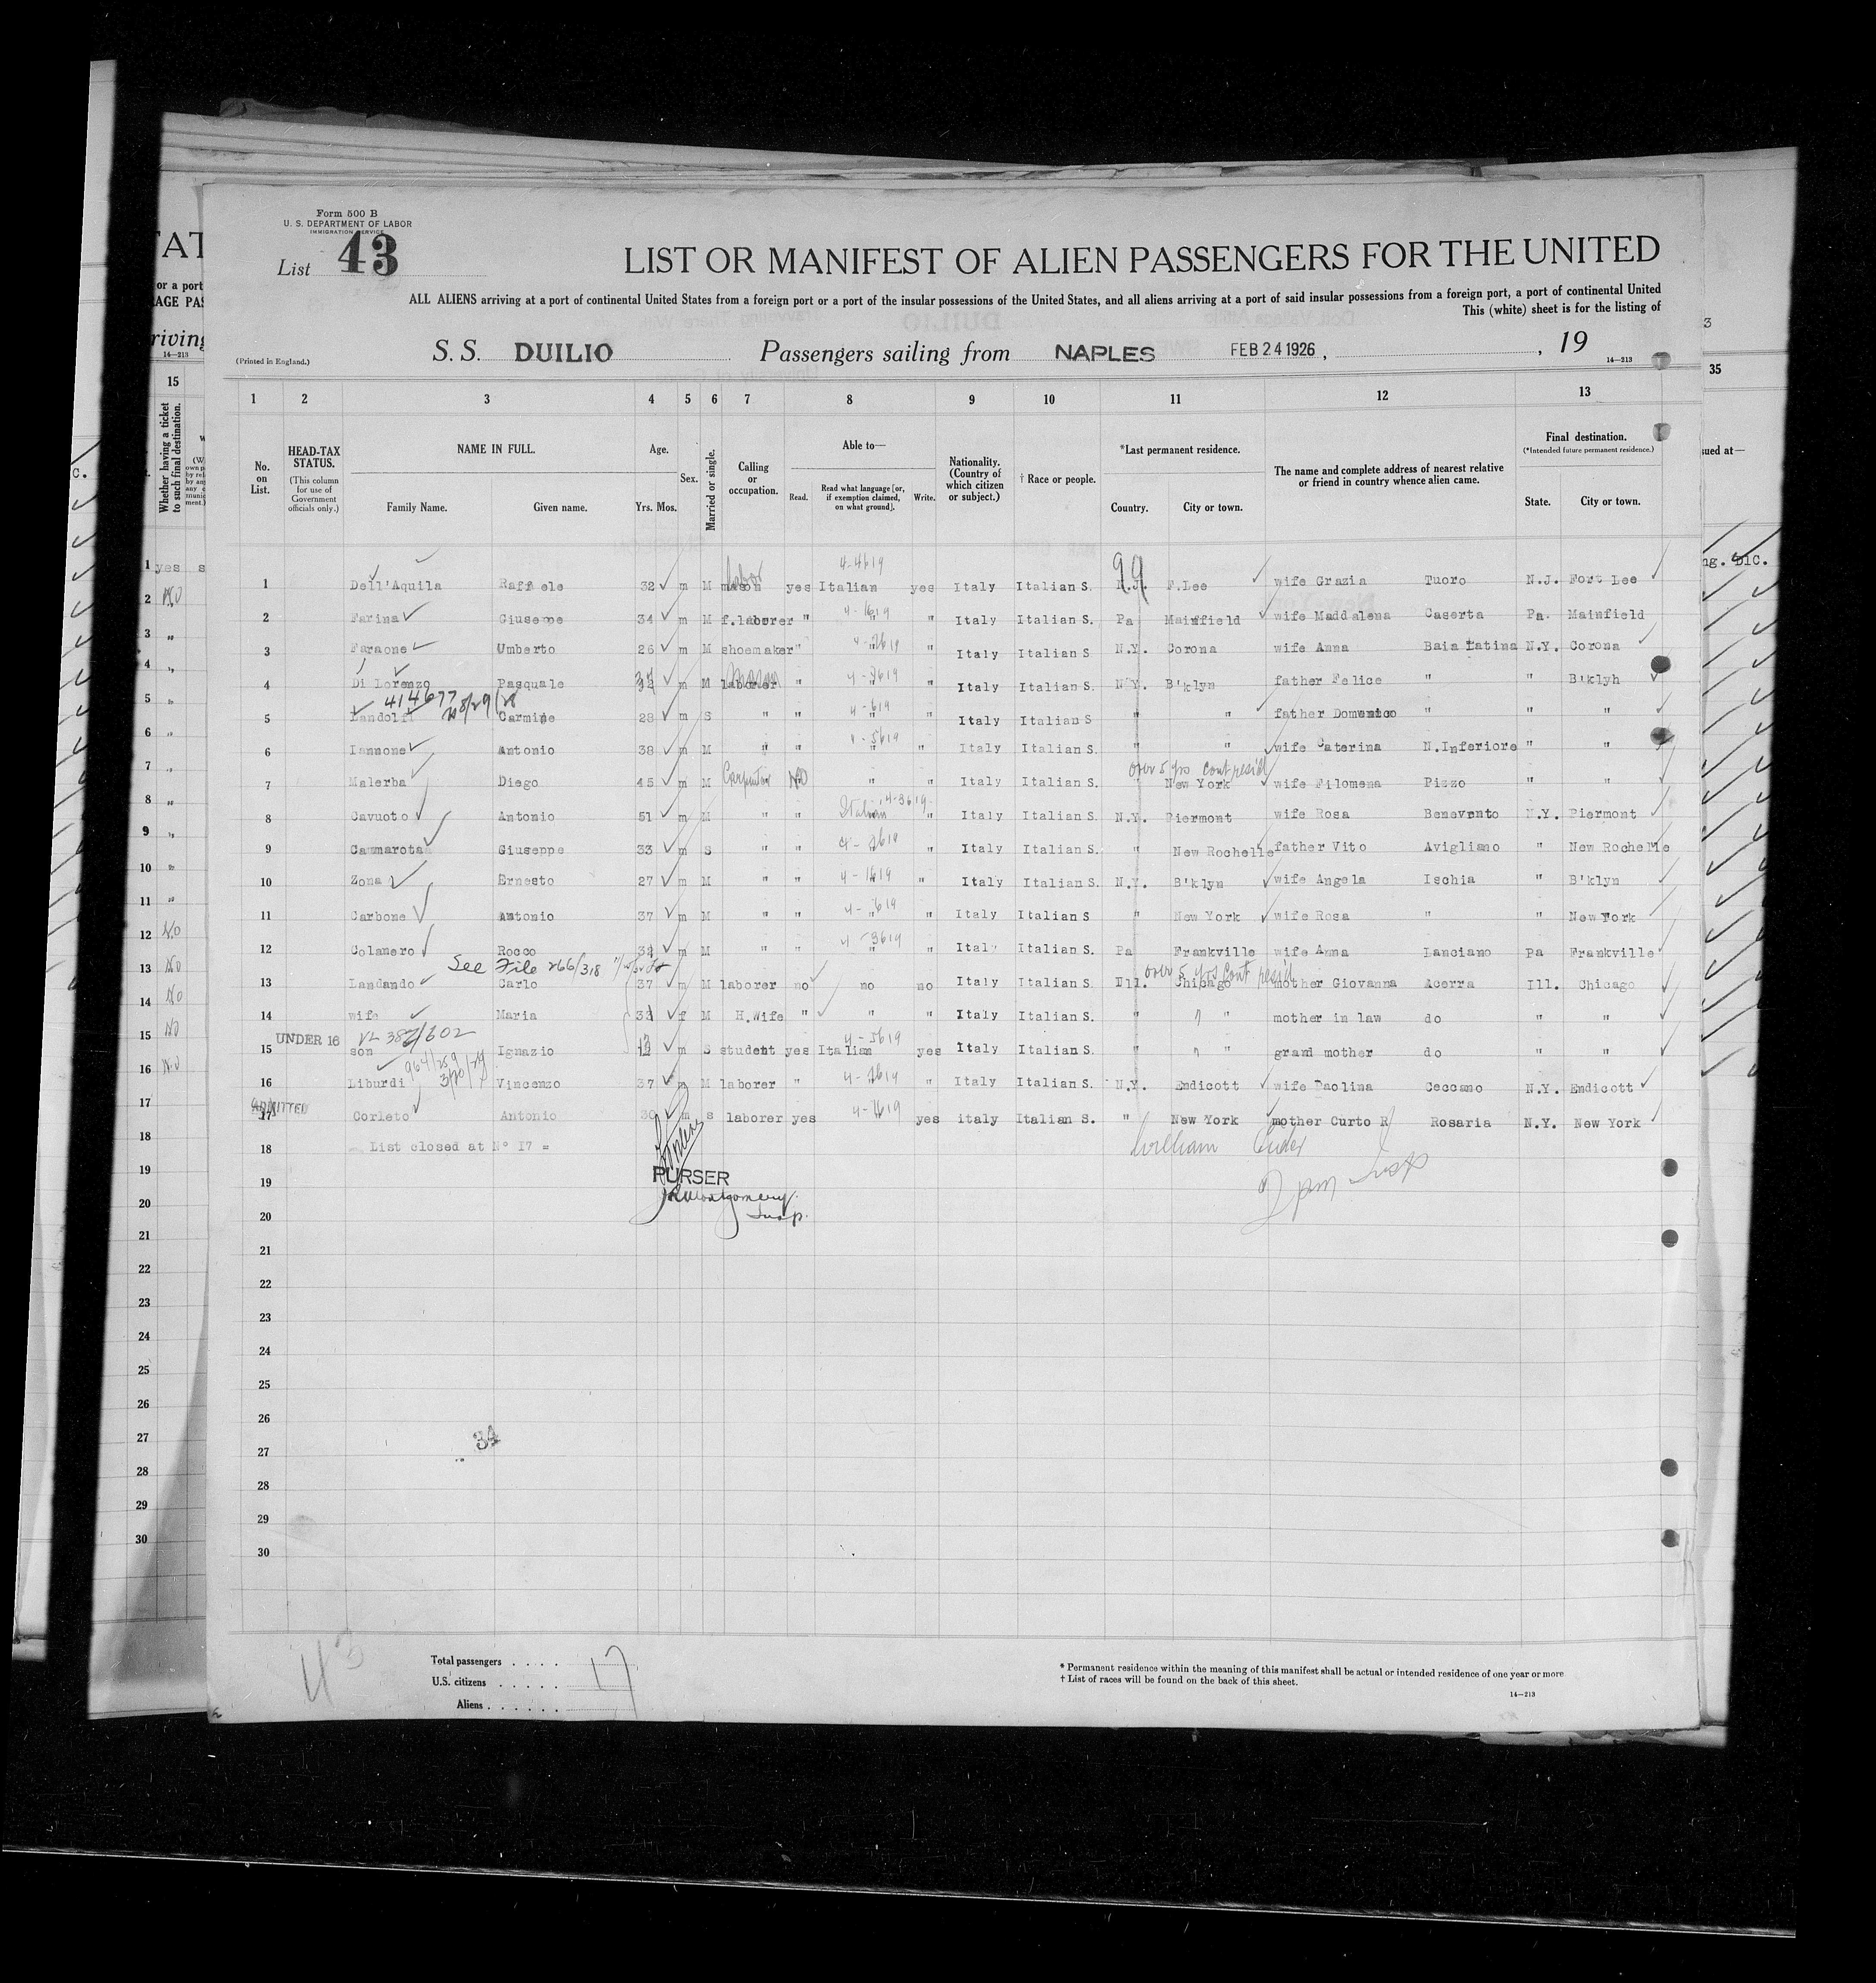 Form 500 B
U. S. DEPARTMENT OF LABOR
IMMIGRATION SERVICE
List 43
LIST OR MANIFEST OF ALIEN PASSENGERS FOR THE UNITED
ALL ALIENS arriving at a port of continental United States from a foreign port or a port of the insular possessions of the United States, and all aliens arriving at a port of said insular possessions from a foreign port, a port of continental United
This (white) sheet is for the listing of
(Printed in England.) S. S. DUILIO Passengers sailing from NAPLES FEB 24 1926, , 19 14—213
1 2 3 4 5 6 7 8 9 10 11 12 13
No. on List. HEAD-TAX STATUS. (This column for use of Government officials only.) NAME IN FULL. Family Name. Given name. Age. Yrs. Mos. Sex. Married or single. Calling or occupation. Able to— Read. Read what language [or, if exemption claimed, on what ground]. Write. Nationality. (Country of which citizen or subject.) † Race or people. *Last permanent residence. Country. City or town. The name and complete address of nearest relative or friend in country whence alien came. Final destination. (*Intended future permanent residence.) State. City or town.
4-4619 99
1 Dell'Aquila Raffaele 32 m M mason labor yes Italian yes Italy Italian S. N.J. F.Lee wife Grazia Tuoro N.J. Fort Lee
2 Farina Giuseppe 34 m M f.laborer " " " Italy Italian S. Pa Mainfield wife Maddalena Caserta Pa. Mainfield
3 Faraone Umberto 26 m M shoemaker " " " Italy Italian S N.Y. Corona wife Anna Baia Latina N.Y. Corona
4 Di Lorenzo Pasquale m M laborer mason " " " Italy Italian S. N.Y. B'klyn father Felice " " B'klyn
414677
5 Landolfi Carmine 28 m S " " " Italy Italian S " " father Domenico " " "
6 Iannone Antonio 38 m M " " " " Italy Italian S. " " wife Caterina N.Inferiore " "
over 5 yrs cont resid
7 Malerba Diego 45 m M Carpenter NO " " Italy Italian S. " New York wife Filomena Pizzo " "
8 Cavuoto Antonio 51 m M " " Italian " Italy Italian S. N.Y. Piermont wife Rosa Benevento N.Y. Piermont
9 Cammarota Giuseppe 33 m S " " " Italy Italian S. " New Rochelle father Vito Avigliano " New Rochelle
10 Zona Ernesto 27 m M " " " " Italy Italian S. N.Y. B'klyn wife Angela Ischia " B'klyn
11 Carbone Antonio 37 m M " " " " Italy Italian S " New York wife Rosa " " New York
12 Colanero Rocco m M " " " Italy Italian S. Pa Frankville wife Anna Lanciano Pa Frankville
See File 266/318 over 5 yrs Cont resid
13 Landando Carlo 37 m M laborer no no no Italy Italian S. Ill. Chicago mother Giovanna Acerra Ill. Chicago
14 wife Maria f M H.Wife " " " Italy Italian S. " " mother in law do " "
UNDER 16
15 son Ignazio m S student yes Italian yes Italy Italian S. " " grand mother do " "
16 Liburdi Vincenzo 37 m M laborer " " Italy Italian S. N.Y. Endicott wife Paolina Ceccano N.Y. Endicott
ADMITTED
17 Corleto Antonio 30 m s laborer yes yes italy Italian S. " New York mother Curto R Rosaria N.Y. New York
18 List closed at N° 17 =
19 PURSER
20 Insp.
21
22
23
24
25
26
34
27
28
29
30
43
Total passengers . . . . 17
U.S. citizens . . . . . .
Aliens . . . . . .
* Permanent residence within the meaning of this manifest shall be actual or intended residence of one year or more
† List of races will be found on the back of this sheet.
14—213